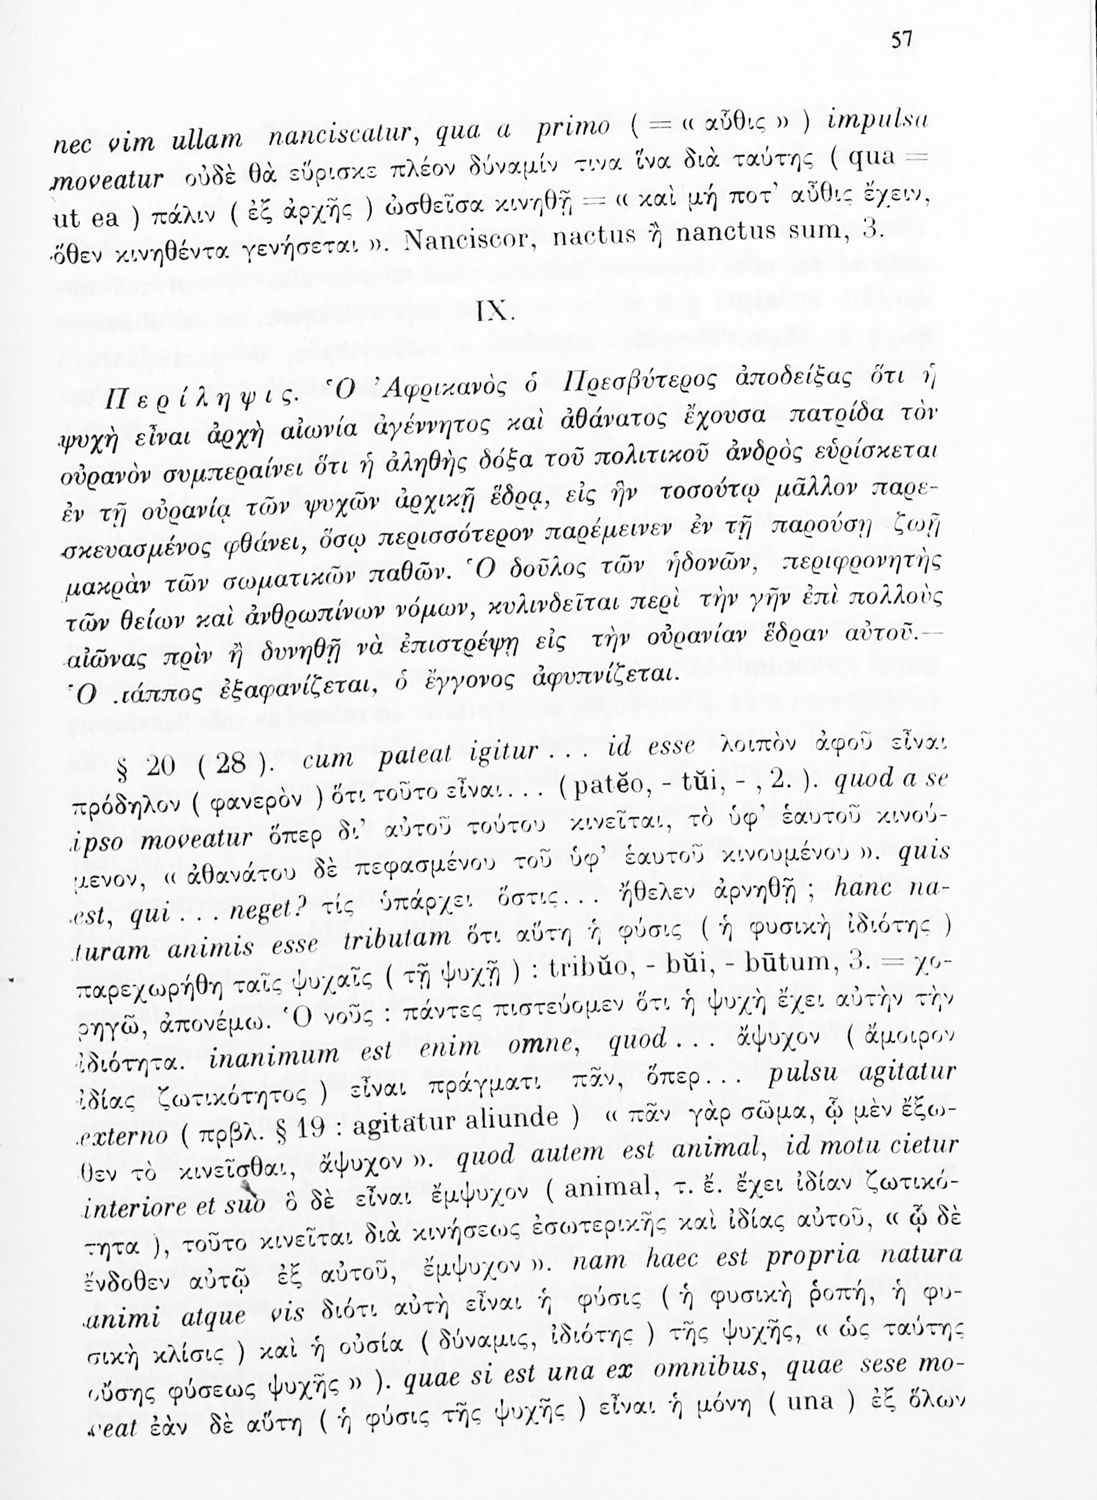 57
nec vim ullam nanciscatur, qua a primo ( = « αὖθις » ) impulsa
moveatur οὐδὲ θὰ εὕρισκε πλέον δύναμίν τινα ἵνα διὰ ταύτης ( qua =
ut ea ) πάλιν ( ἐξ ἀρχῆς ) ὠσθεῖσα κινηθῇ = « καὶ μή ποτ’ αὖθις ἔχειν,
ὅθεν κινηθέντα γενήσεται ». Nanciscor, nactus ἢ nanctus sum, 3.
IX.
Περίληψις. Ὁ Ἀφρικανὸς ὁ Πρεσβύτερος ἀποδείξας ὅτι ἡ
ψυχὴ εἶναι ἀρχὴ αἰωνία ἀγέννητος καὶ ἀθάνατος ἔχουσα πατρίδα τὸν
οὐρανὸν συμπεραίνει ὅτι ἡ ἀληθὴς δόξα τοῦ πολιτικοῦ ἀνδρὸς εὑρίσκεται
ἐν τῇ οὐρανίᾳ τῶν ψυχῶν ἀρχικῇ ἕδρᾳ, εἰς ἣν τοσούτῳ μᾶλλον παρε-
σκευασμένος φθάνει, ὅσῳ περισσότερον παρέμεινεν ἐν τῇ παρούσῃ ζωῇ
μακρὰν τῶν σωματικῶν παθῶν. Ὁ δοῦλος τῶν ἡδονῶν, περιφρονητὴς
τῶν θείων καὶ ἀνθρωπίνων νόμων, κυλινδεῖται περὶ τὴν γῆν ἐπὶ πολλοὺς
αἰῶνας πρὶν ἢ δυνηθῇ νὰ ἐπιστρέψῃ εἰς τὴν οὐρανίαν ἕδραν αὐτοῦ.—
Ὁ πάππος ἐξαφανίζεται, ὁ ἔγγονος ἀφυπνίζεται.
§ 20 ( 28 ). cum pateat igitur . . . id esse λοιπὸν ἀφοῦ εἶναι
πρόδηλον ( φανερὸν ) ὅτι τοῦτο εἶναι. . . ( patĕo, - tŭi, - , 2. ). quod a se
ipso moveatur ὅπερ δι’ αὐτοῦ τούτου κινεῖται, τὸ ὑφ’ ἑαυτοῦ κινού-
μενον, « ἀθανάτου δὲ πεφασμένου τοῦ ὑφ’ ἑαυτοῦ κινουμένου ». quis
est, qui . . . neget? τίς ὑπάρχει ὅστις. . . ἤθελεν ἀρνηθῇ ; hanc na-
turam animis esse tributam ὅτι αὕτη ἡ φύσις ( ἡ φυσικὴ ἰδιότης )
παρεχωρήθη ταῖς ψυχαῖς ( τῇ ψυχῇ ) : tribŭo, - bŭi, - būtum, 3. = χο-
ρηγῶ, ἀπονέμω. Ὁ νοῦς : πάντες πιστεύομεν ὅτι ἡ ψυχὴ ἔχει αὐτὴν τὴν
ἰδιότητα. inanimum est enim omne, quod . . . ἄψυχον ( ἄμοιρον
ἰδίας ζωτικότητος ) εἶναι πράγματι πᾶν, ὅπερ. . . pulsu agitatur
externo ( πρβλ. § 19 : agitatur aliunde ) « πᾶν γὰρ σῶμα, ᾧ μὲν ἔξω-
θεν τὸ κινεῖσθαι, ἄψυχον ». quod autem est animal, id motu cietur
interiore et suo ὃ δὲ εἶναι ἔμψυχον ( animal, τ. ἔ. ἔχει ἰδίαν ζωτικό-
τητα ), τοῦτο κινεῖται διὰ κινήσεως ἐσωτερικῆς καὶ ἰδίας αὐτοῦ, « ᾧ δὲ
ἔνδοθεν αὐτῷ ἐξ αὐτοῦ, ἔμψυχον ». nam haec est propria natura
animi atque vis διότι αὐτὴ εἶναι ἡ φύσις ( ἡ φυσικὴ ῥοπή, ἡ φυ-
σικὴ κλίσις ) καὶ ἡ οὐσία ( δύναμις, ἰδιότης ) τῆς ψυχῆς, « ὡς ταύτης
οὔσης φύσεως ψυχῆς » ). quae si est una ex omnibus, quae sese mo-
veat ἐὰν δὲ αὕτη ( ἡ φύσις τῆς ψυχῆς ) εἶναι ἡ μόνη ( una ) ἐξ ὅλων